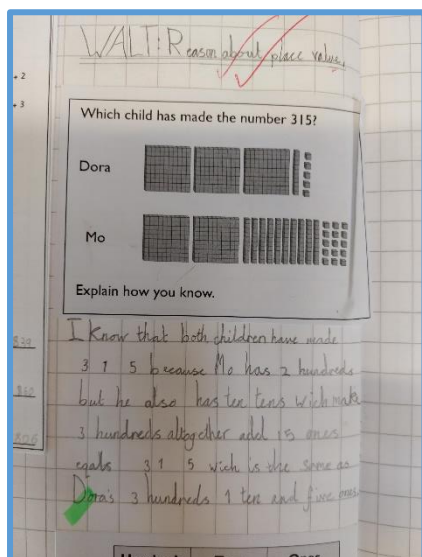 WALT: Reason about place value.
+ 2
+ 3
Which child has made the number 315?
Dora
Mo
Explain how you know.
I know that both children have made
3 1 5 because Mo has 2 hundreds
but he also has ten tens wich make
3 hundreds altogether add 15 ones
eqals 3 1 5 wich is the same as
Dora's 3 hundreds 1 ten and five ones.
Hundreds Tens Ones